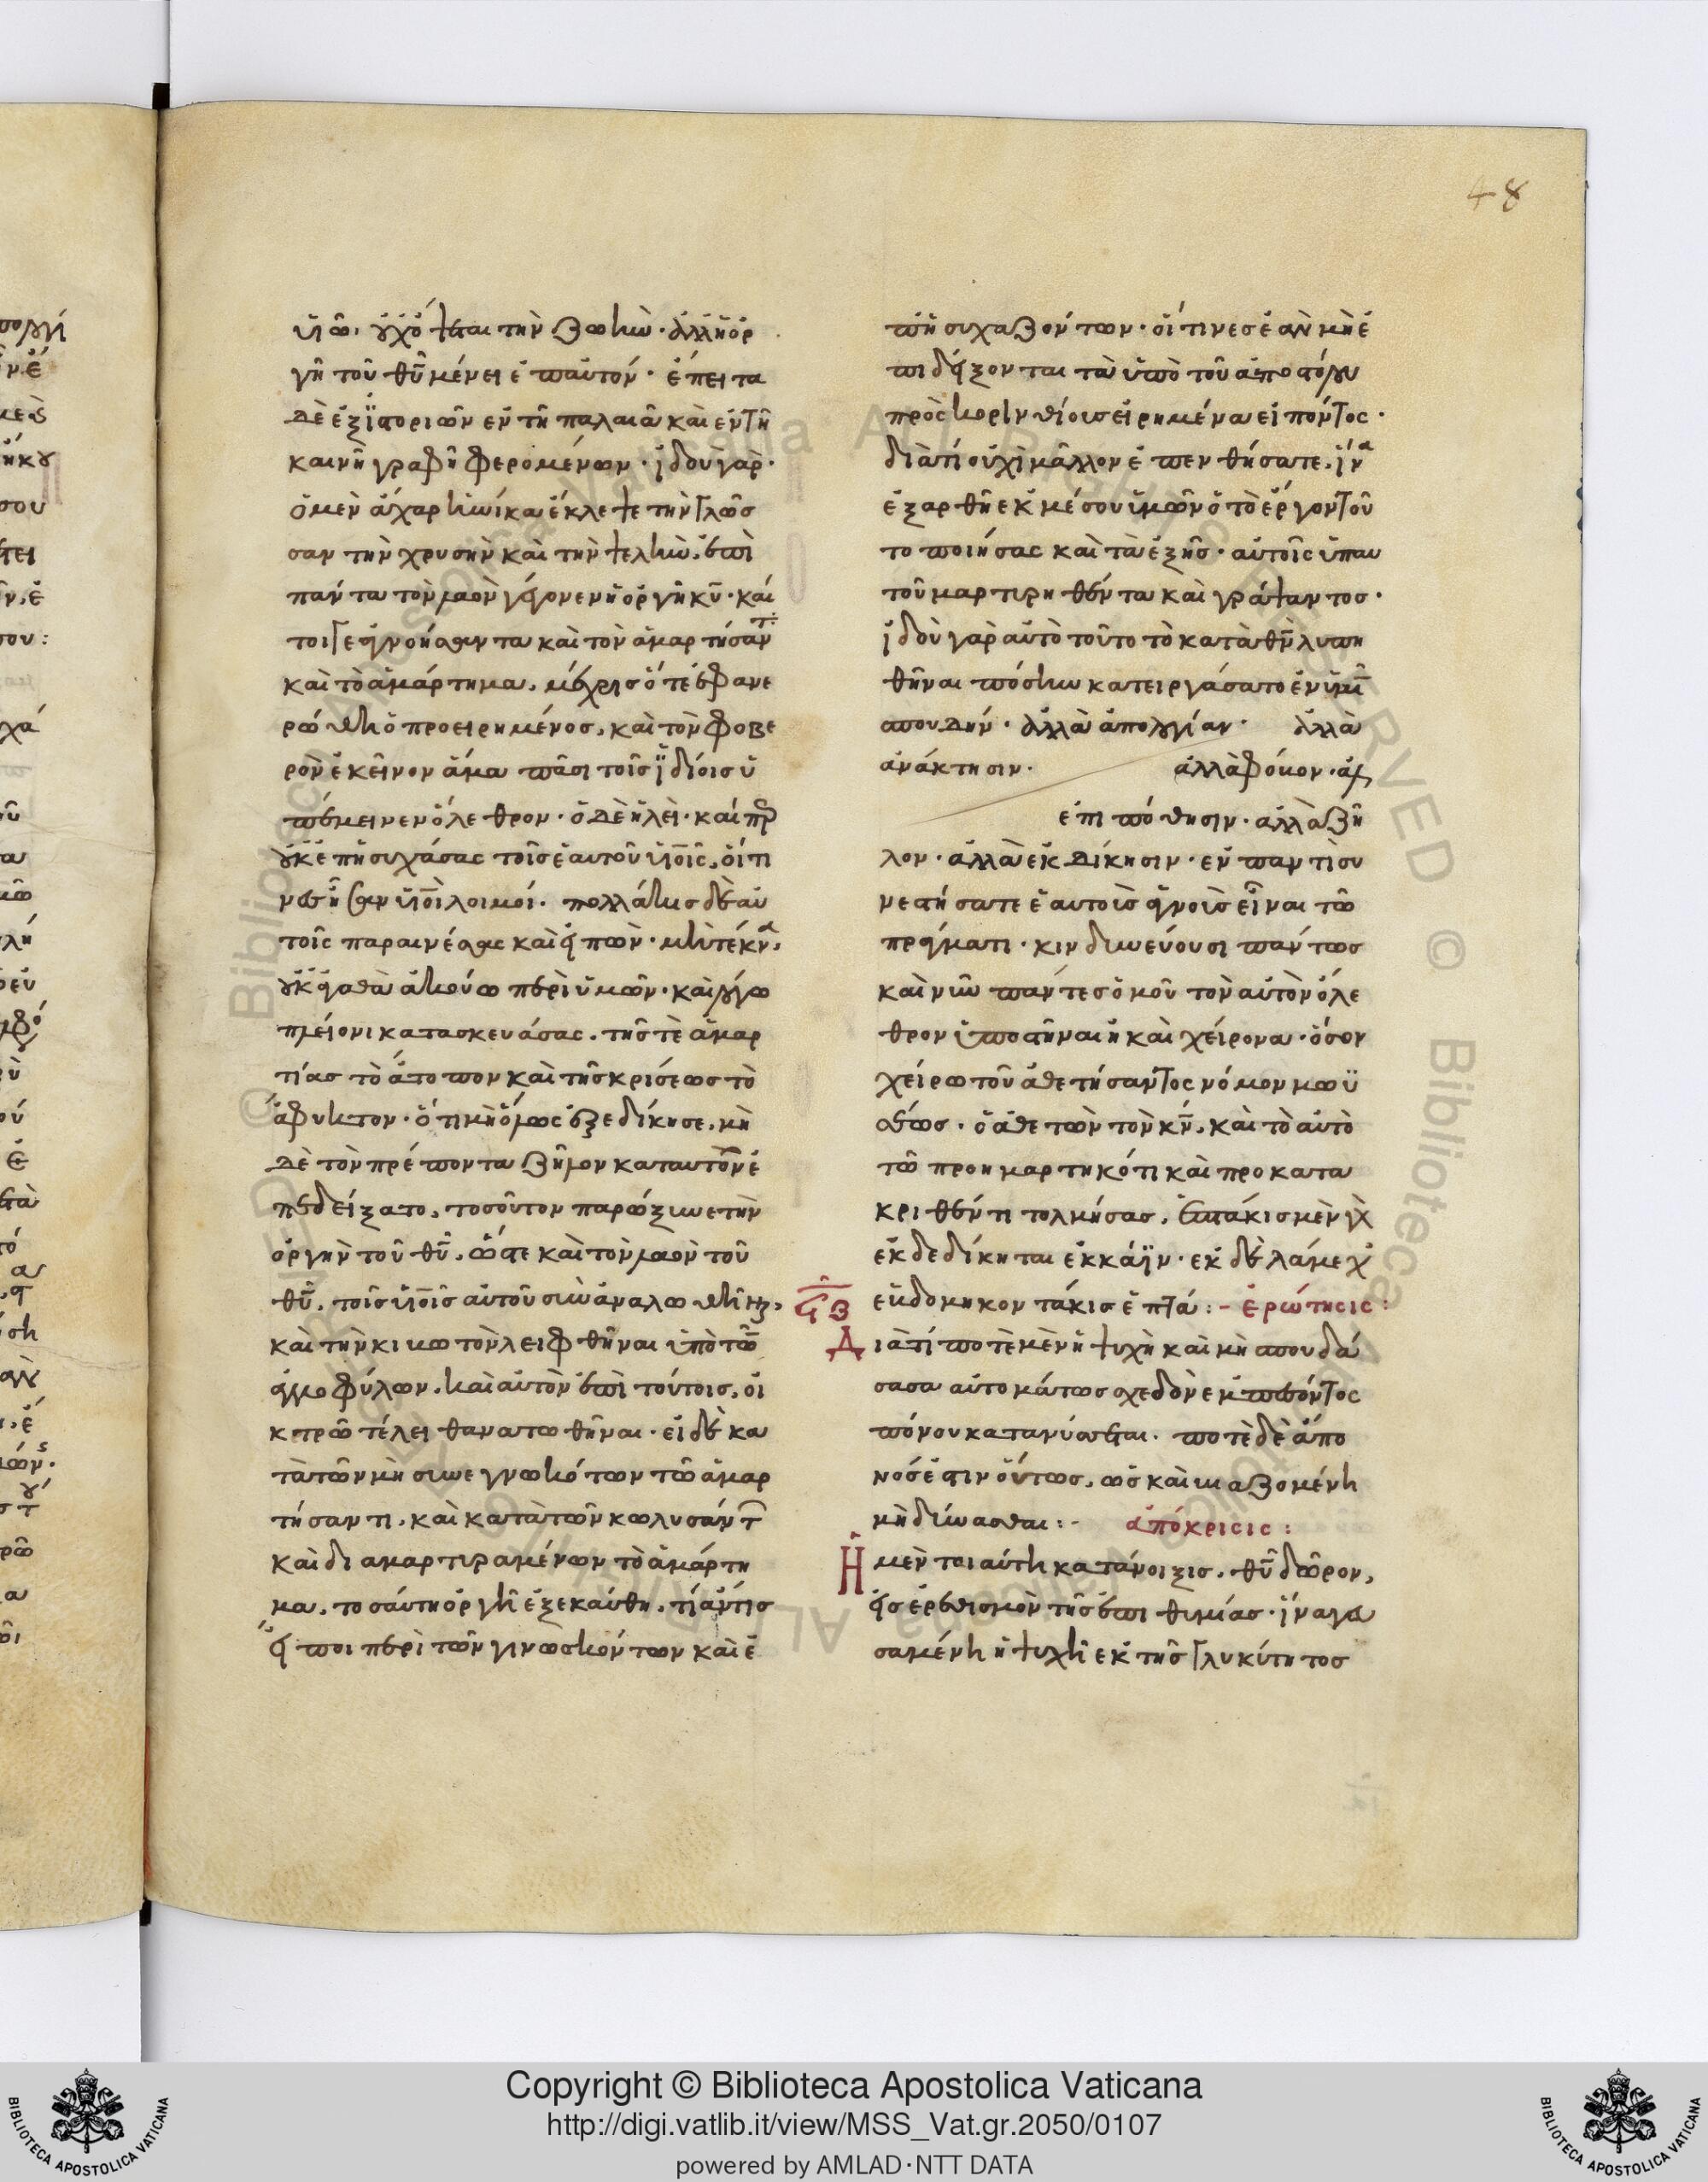 48
υἱῶ· οὐχ ὄψεται τὴν ζωήν· ἀλλ' ἡ ὀρ
γὴ τοῦ θῦ μένει ἐπ' αὐτόν· ἔπειτα
δὲ ἐξ ἱστοριῶν ἐν τῆ παλαιᾶ καὶ ἐν τῆ
καινῆ γραφῆ φερομένων· ἰδοὺ γὰρ·
ὁ μὲν ἄχαρ ἡνίκα ἔκλεψε τὴν γλῶσ
σαν τὴν χρυσῆν καὶ τὴν ψελὴν, ἐπὶ
πάντα τὸν λαὸν γέγονεν ἡ ὀργὴ κῦ· καί
τοι γε ἀγνοήσαντα καὶ τὸν ἁμαρτήσαντ
καὶ τὸ ἁμάρτημα, μέχρις ὅτε ἐφανε
ρώθη ὁ προειρημένος, καὶ τὸν φοβε
ρὸν ἐκεῖνον ἅμα πᾶσι τοῖς ἰδίοις ὑ
πέμεινεν ὄλεθρον· ὁ δὲ ἠλεὶ· καίπερ
οὐκ ἐπησυχάσας τοῖς ἑαυτοῦ υἱοῖς, οἵτι
νες ἦσαν υἱοὶ λοιμοί· πολλάκις δὲ αὐ
τοῖς παραινέσας καὶ εἰπὼν· μὴ τέκνα,
οὐκ ἀγαθὰ ἀκούω περὶ ὑμῶν· καὶ λόγω
πλείονι κατασκευάσας, τῆς τὲ ἁμαρ
τίας τὸ ἄτοπον καὶ τῆς κρίσεως τὸ
ἄφυκτον· ὅτι μὴ ὅμως ἐξεδίκησε, μὴ
δὲ τὸν πρέποντα ζῆλον κατ' αὐτῶν ἐ
πεδείξατο, τοσοῦτον παρώξυνε τὴν
ὀργὴν τοῦ θῦ, ὥστε καὶ τὸν λαὸν τοῦ
θῦ, τοῖς υἱοῖς αὐτοῦ συναναλωθῆναι,
καὶ τὴν κιβωτὸν λειφθῆναι ὑπὸ τῶν
ἀλλοφύλων, καὶ αὐτὸν ἐπὶ τούτοις, οἰ
κτρῶ τέλει θανατωθῆναι· εἰ δὲ κα
τὰ τῶν μὴ συνεγνωκότων τῶ ἁμαρ
τήσαντι, καὶ κατὰ τῶν κωλυσάντ
καὶ διαμαρτυραμένων τὸ ἁμάρτη
μα, τοσαύτη ὀργὴ ἐξεκαύθη, τί ἄν τις
εἴποι περὶ τῶν γινωσκόντων καὶ ἐ
πησυχαζόντων· οἵτινες ἐὰν μὴ ἐ
πιδείξονται τὰ ὑπὸ τοῦ ἀποστόλου
πρὸς κορινθίους εἰρημένα εἰπόντος·
διατί οὐχὶ μᾶλλον ἐπενθήσατε, ἵνα
ἐξαρθῆ ἐκ μέσου ὑμῶν ὁ τὸ ἔργον τοῦ
το ποιήσας καὶ τὰ ἑξῆς· αὐτοῖς ὑπ' αυ
τοῦ μαρτυρηθέντα καὶ γράψαντος·
ἰδοὺ γὰρ αὐτὸ τοῦτο τὸ κατὰ θν λυπη
θῆναι πόσην κατειργάσατο ἐν ὑμῖ
σπουδήν· ἀλλὰ ἀπολογίαν· ἀλλὰ
ἀνάκτησιν· ἀλλὰ φόβον· ἀλλ
ἐπιπόθησιν· ἀλλὰ ζῆ
λον· ἀλλὰ ἐκδίκησιν· ἐν παντὶ συ
νεστήσατε ἑαυτοὺς ἁγνοὺς εἶναι τῶ
πράγματι· κινδυνεύουσι πάντως
καὶ νῦν πάντες ὁμοῦ τὸν αὐτὸν ὄλε
θρον ὑποστῆναι ἢ καὶ χείρονα· ὅσον
χείρω τοῦ ἀθετήσαντος νόμον μωϋ
σέως· ὁ ἀθετῶν τὸν κν, καὶ τὸ αὐτὸ
τῶ προημαρτηκότι καὶ προκατα
κριθέντι τολμήσας, ἑπτάκις μὲν γὰρ
ἐκδεδίκηται ἐκ κάϊν· ἐκ δὲ λάμεχ
εὐδομηκοντάκις ἑπτά:- ἐρώτησις:
Διατί ποτὲ μὲν ἡ ψυχὴ καὶ μὴ σπουδά
σασα αὐτομάτως σχεδὸν ἐμπεσόντος
πόνου κατανύσεται· ποτὲ δὲ ἄπο
νός ἐστιν οὕτως, ὡς καὶ βιαζομένη
μὴ δύνασθαι:- ἀπόκρισις:
Ἡ μέντοι αὐτὴ κατάνοιξις, θῦ δῶρον,
εἰς ἐρεθισμὸν τῆς ἐπιθυμίας· ἵνα γευ
σαμένη ἡ ψυχὴ ἐκ τῆς γλυκύτητος
Copyright © Biblioteca Apostolica Vaticana
http://digi.vatlib.it/view/MSS_Vat.gr.2050/0107
powered by AMLAD·NTT DATA
BIBLIOTECA APOSTOLICA VATICANA
BIBLIOTECA APOSTOLICA VATICANA